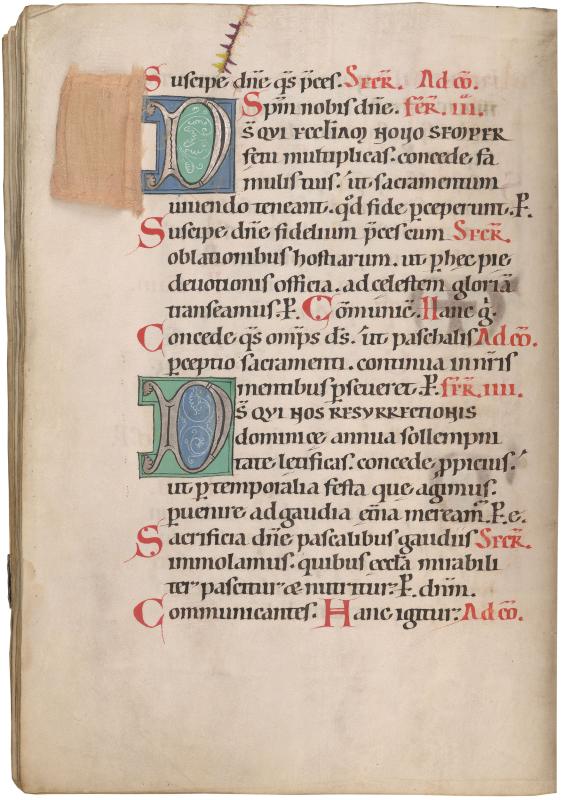 Suscipe dñe q̃s p̃ces. SECR̃. AD CÕ.
Spm̃ nobis dñe. FER̃. III.
DS̃ QUI ECCLĪAM NOUO SEMPER
fetu multiplicas. concede fa
mulis tuis. ut sacramentum
uiuendo teneant. qd̃ fide ꝑceperunt. P̃.
Suscipe dñe fidelium p̃ces cum SECR̃.
oblationibus hostiarum. ut ꝑ hec pie
deuotionis officia. ad celestem gloriā
transeamus. P̃. Cōmunic̃. Hanc g̃.
Concede q̃s omp̃s ds̃. ut paschalis AD CÕ.
ꝑceptio sacramenti. continua in nr̃is
mentibus ꝑseueret. P̃. FER̃. IIII.
DS̃ QUI NOS RESURRECTIONIS
dominicę annua sollempni
tate letificas. concede ꝓpicius.
ut ꝑ temporalia festa que agimus.
ꝑuenire ad gaudia et̃na meream̃. P̃. e.
Sacrificia dñe pascalibus gaudiis SECR̃.
immolamus. quibus eccl̃a mirabili
ter pascitur & nutritur. P̃. dñm.
Communicantes. Hanc igitur. AD CÕ.